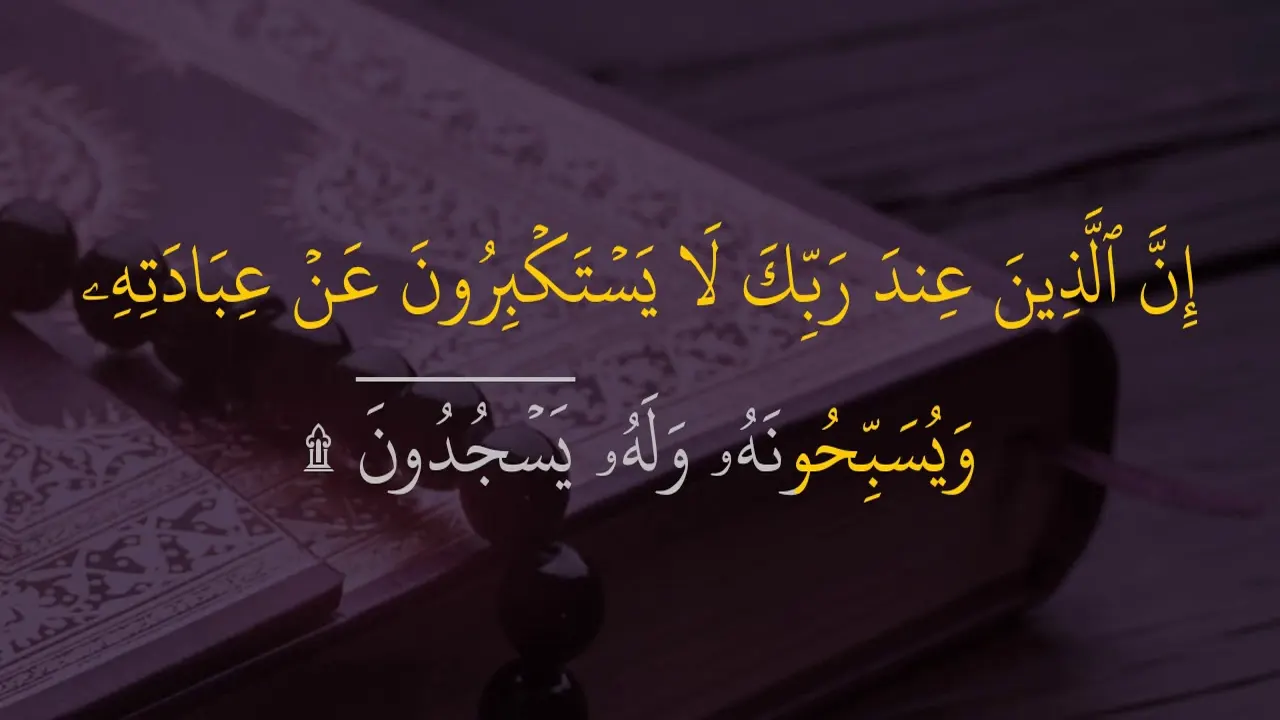 إِنَّ ٱلَّذِينَ عِندَ رَبِّكَ لَا يَسۡتَكۡبِرُونَ عَنۡ عِبَادَتِهِۦ
وَيُسَبِّحُونَهُۥ وَلَهُۥ يَسۡجُدُونَۤ ۩